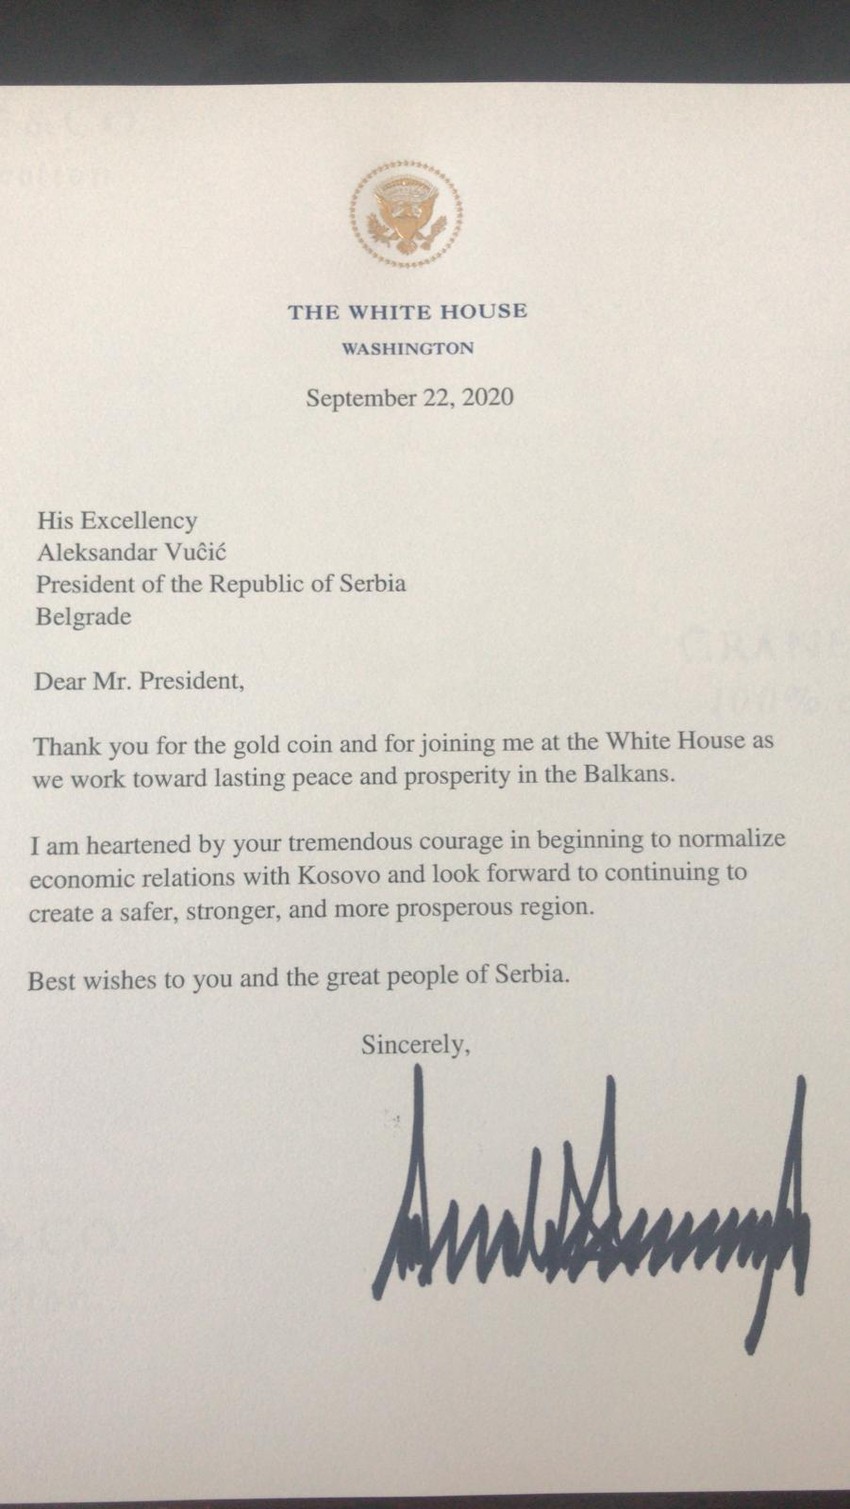 THE WHITE HOUSE
WASHINGTON
September 22, 2020
His Excellency
Aleksandar Vuĉić
President of the Republic of Serbia
Belgrade
Dear Mr. President,
Thank you for the gold coin and for joining me at the White House as
we work toward lasting peace and prosperity in the Balkans.
I am heartened by your tremendous courage in beginning to normalize
economic relations with Kosovo and look forward to continuing to
create a safer, stronger, and more prosperous region.
Best wishes to you and the great people of Serbia.
Sincerely,
CRANE
100%